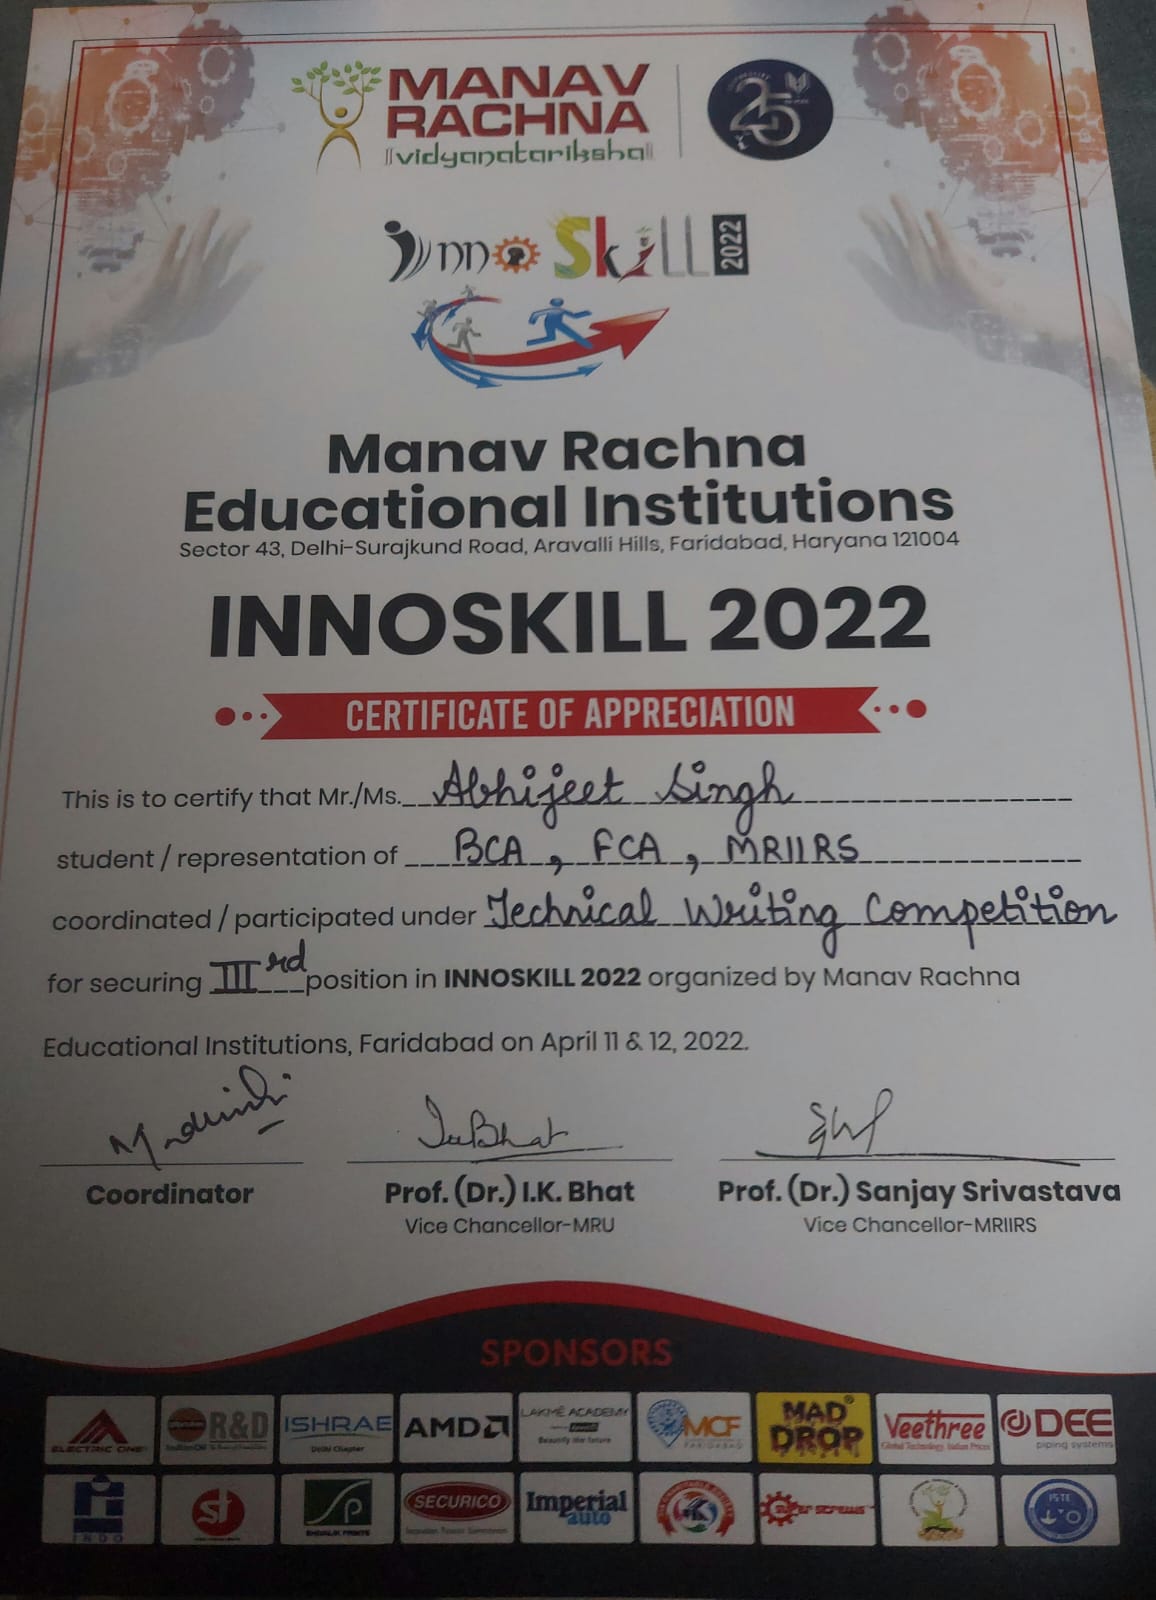 MANAV
RACHNA
॥vidyanatariksha॥
25
InnoSkill 2022
Manav Rachna
Educational Institutions
Sector 43, Delhi-Surajkund Road, Aravalli Hills, Faridabad, Haryana 121004
INNOSKILL 2022
CERTIFICATE OF APPRECIATION
This is to certify that Mr./Ms. Abhijeet Singh
student / representation of BCA, FCA, MRIIRS
coordinated / participated under Technical Writing Competition
for securing IIIrd position in INNOSKILL 2022 organized by Manav Rachna
Educational Institutions, Faridabad on April 11 & 12, 2022.
Coordinator
Prof. (Dr.) I.K. Bhat
Vice Chancellor-MRU
Prof. (Dr.) Sanjay Srivastava
Vice Chancellor-MRIIRS
SPONSORS
ELECTRIC ONE
R&D
ISHRAE
Delhi Chapter
AMD
LAKMÉ ACADEMY
Beautify the future
MCF
FARIDABAD
MAD DROP
Veethree
Global Technology, Indian Prices
DEE
piping systems
INDO
st
SHIVALIK PRINTS
SECURICO
Imperial
auto
ISTE